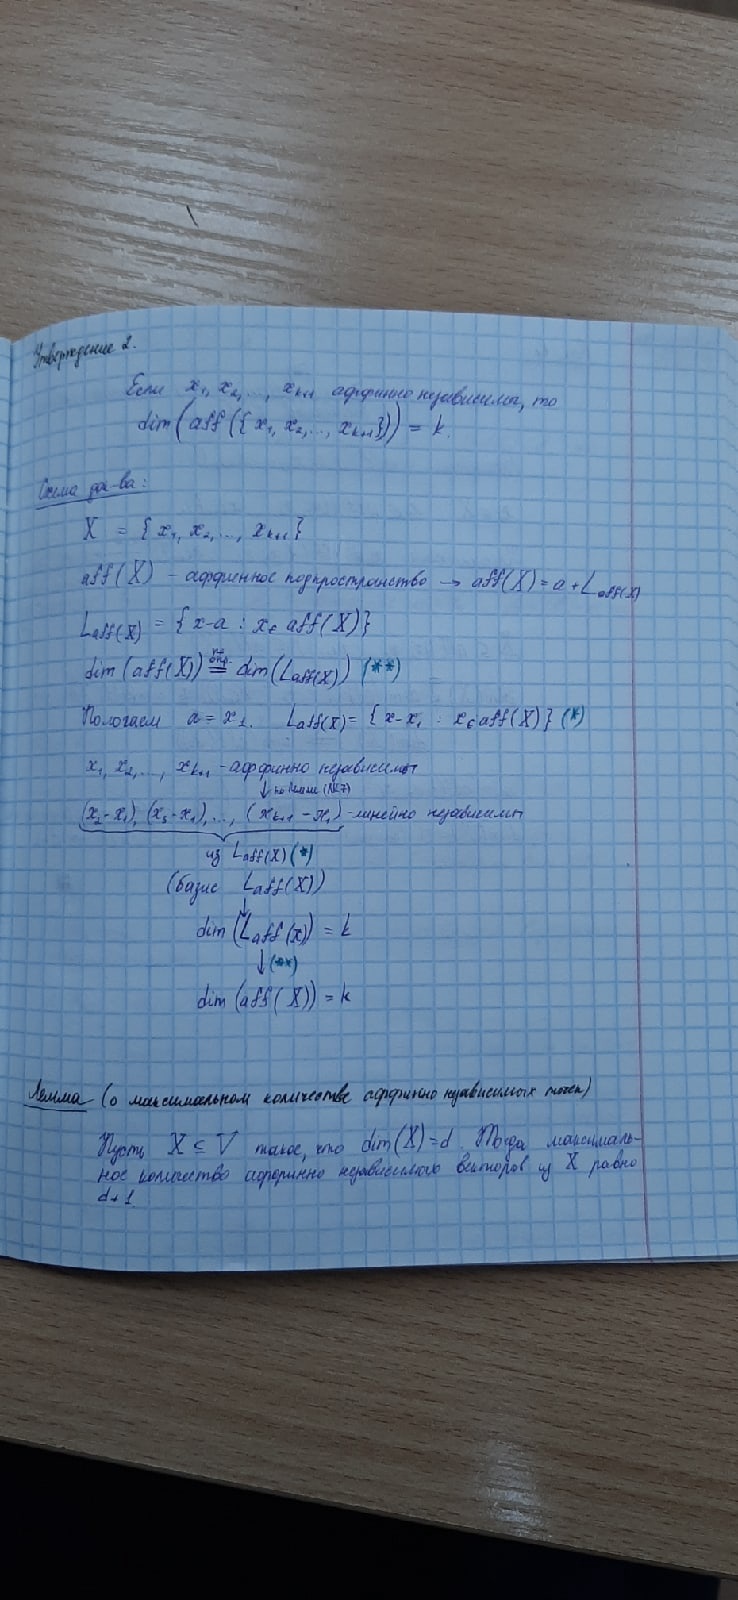 Утверждение 2.
Если x₁, x₂, ..., xₖ₊₁ аффинно независимы, то
dim(aff({x₁, x₂, ..., xₖ₊₁})) = k.
Схема док-ва:
X = {x₁, x₂, ..., xₖ₊₁}
aff(X) - аффинное подпространство → aff(X) = a + L_aff(X)
L_aff(X) = {x-a : x ∈ aff(X)}
dim(aff(X)) = dim(L_aff(X)) (**)
Пологаем a = x₁. L_aff(X) = {x-x₁ : x ∈ aff(X)} (*)
x₁, x₂, ..., xₖ₊₁ - аффинно независимы
↓ по лемме (№7)
(x₂-x₁), (x₃-x₁), ..., (xₖ₊₁-x₁) - линейно независимы
из L_aff(X) (*)
(базис L_aff(X))
↓
dim(L_aff(X)) = k
↓(**)
dim(aff(X)) = k
Лемма (о максимальном количестве аффинно независимых точек)
Пусть X ⊆ V такое, что dim(X) = d. Тогда максималь-
ное количество аффинно независимого векторов из X равно
d+1